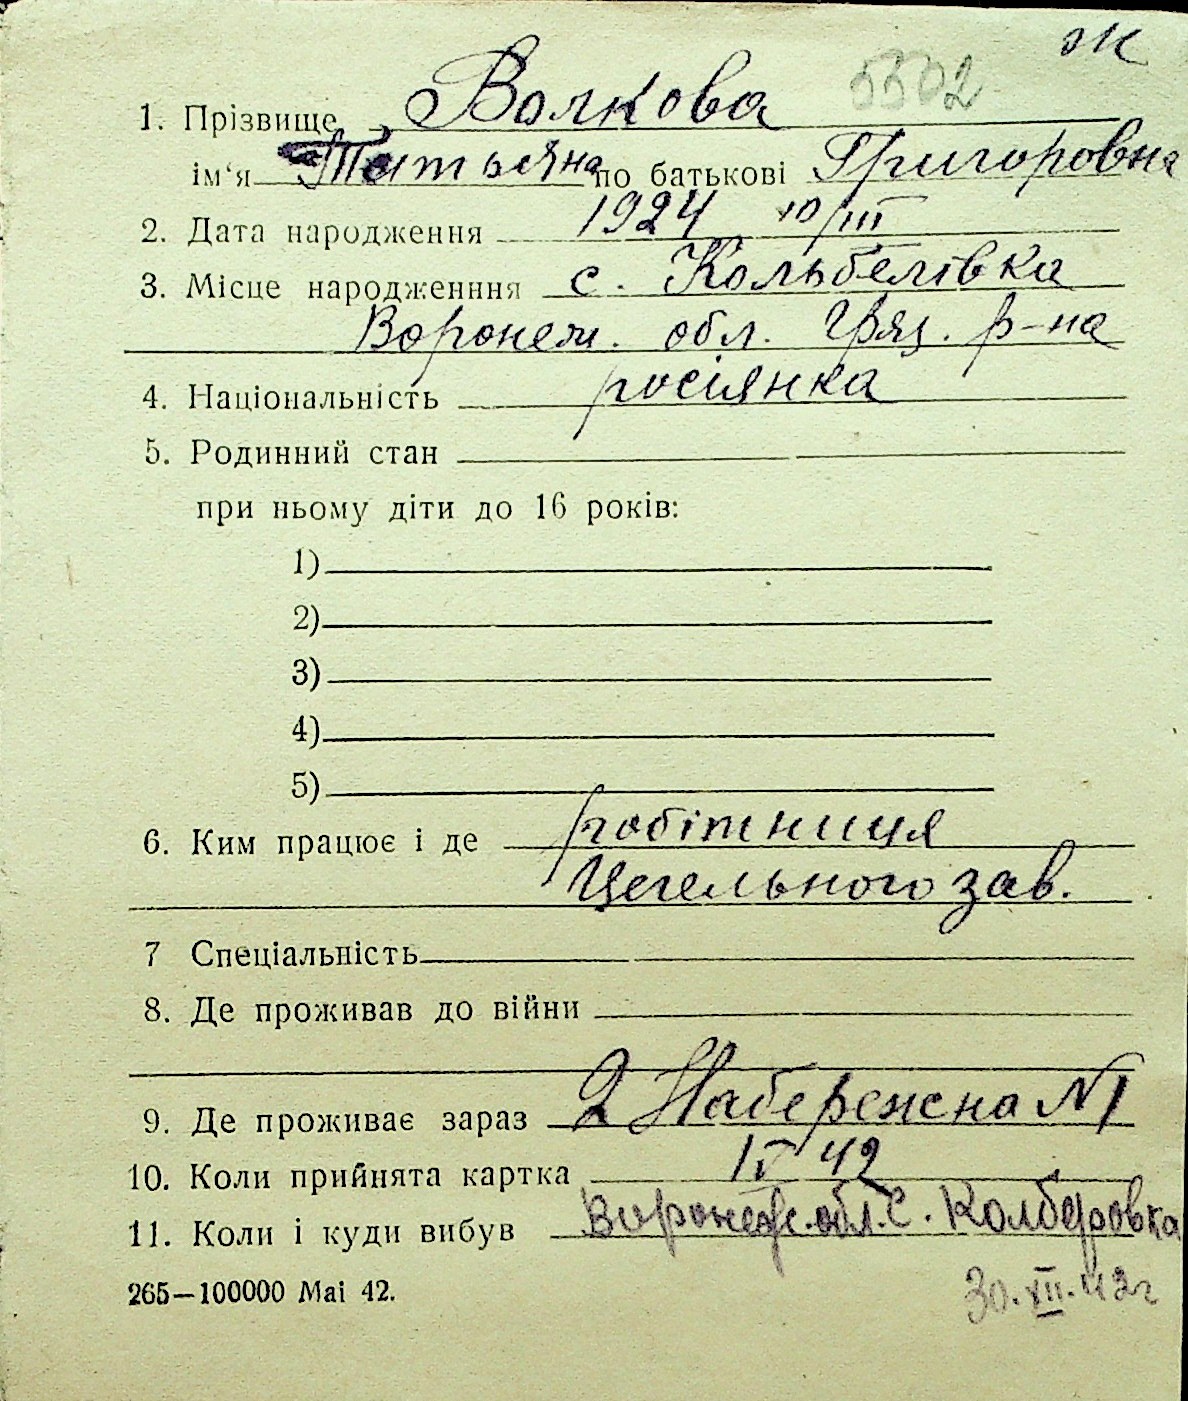 ж
5502
1. Прізвище Волкова
ім‘я Татьяна по батькові Григоровна
2. Дата народження 1924 10/III
3. Місце народженння с. Кольбелівка
Воронеж. обл. Гряз. р-на
4. Національність росіянка
5. Родинний стан
при ньому діти до 16 років:
1)
2)
3)
4)
5)
6. Ким працює і де робітниця
Цегельного зав.
7 Спеціальність
8. Де проживав до війни
9. Де проживає зараз 2 Набережна №1
10. Коли прийнята картка IV 42
11. Коли і куди вибув Воронеж. обл. с. Колбеловка
265—100000 Mai 42.
30.XII.42г